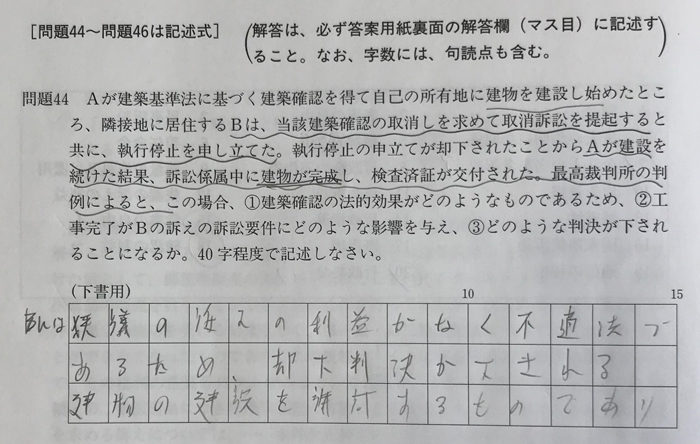 [問題44～問題46は記述式]
(解答は、必ず答案用紙裏面の解答欄（マス目）に記述す
ること。なお、字数には、句読点も含む。)
問題44 Aが建築基準法に基づく建築確認を得て自己の所有地に建物を建設し始めたとこ
ろ、隣接地に居住するBは、当該建築確認の取消しを求めて取消訴訟を提起すると
共に、執行停止を申し立てた。執行停止の申立てが却下されたことからAが建設を
続けた結果、訴訟係属中に建物が完成し、検査済証が交付された。最高裁判所の判
例によると、この場合、①建築確認の法的効果がどのようなものであるため、②工
事完了がBの訴えの訴訟要件にどのような影響を与え、③どのような判決が下され
ることになるか。40字程度で記述しなさい。
(下書用) 10 15
狭義の訴えの利益がなく不適法で
あるため、却下判決が下される
建物の建設を適法するものであり